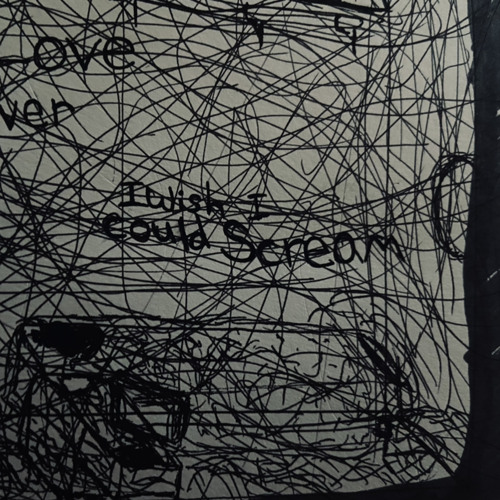 Love
ver
I wish I
could Scream